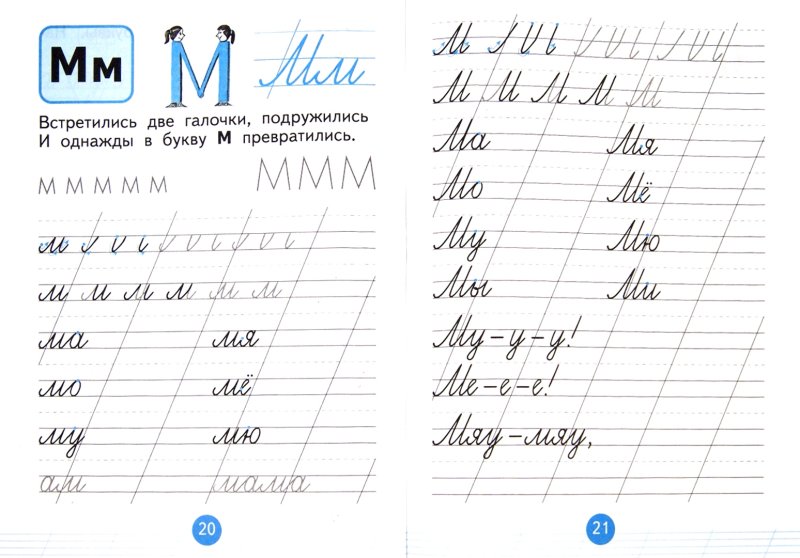 Мм М Мм
Встретились две галочки, подружились
И однажды в букву М превратились.
М М М М М М М М
м
м м м м м м
ма мя
мо мё
му мю
ам мама
20
М
М М М М М
Ма Мя
Мо Мё
Му Мю
Мы Ми
Му – у – у!
Ме – е – е!
Мяу – мяу,
21